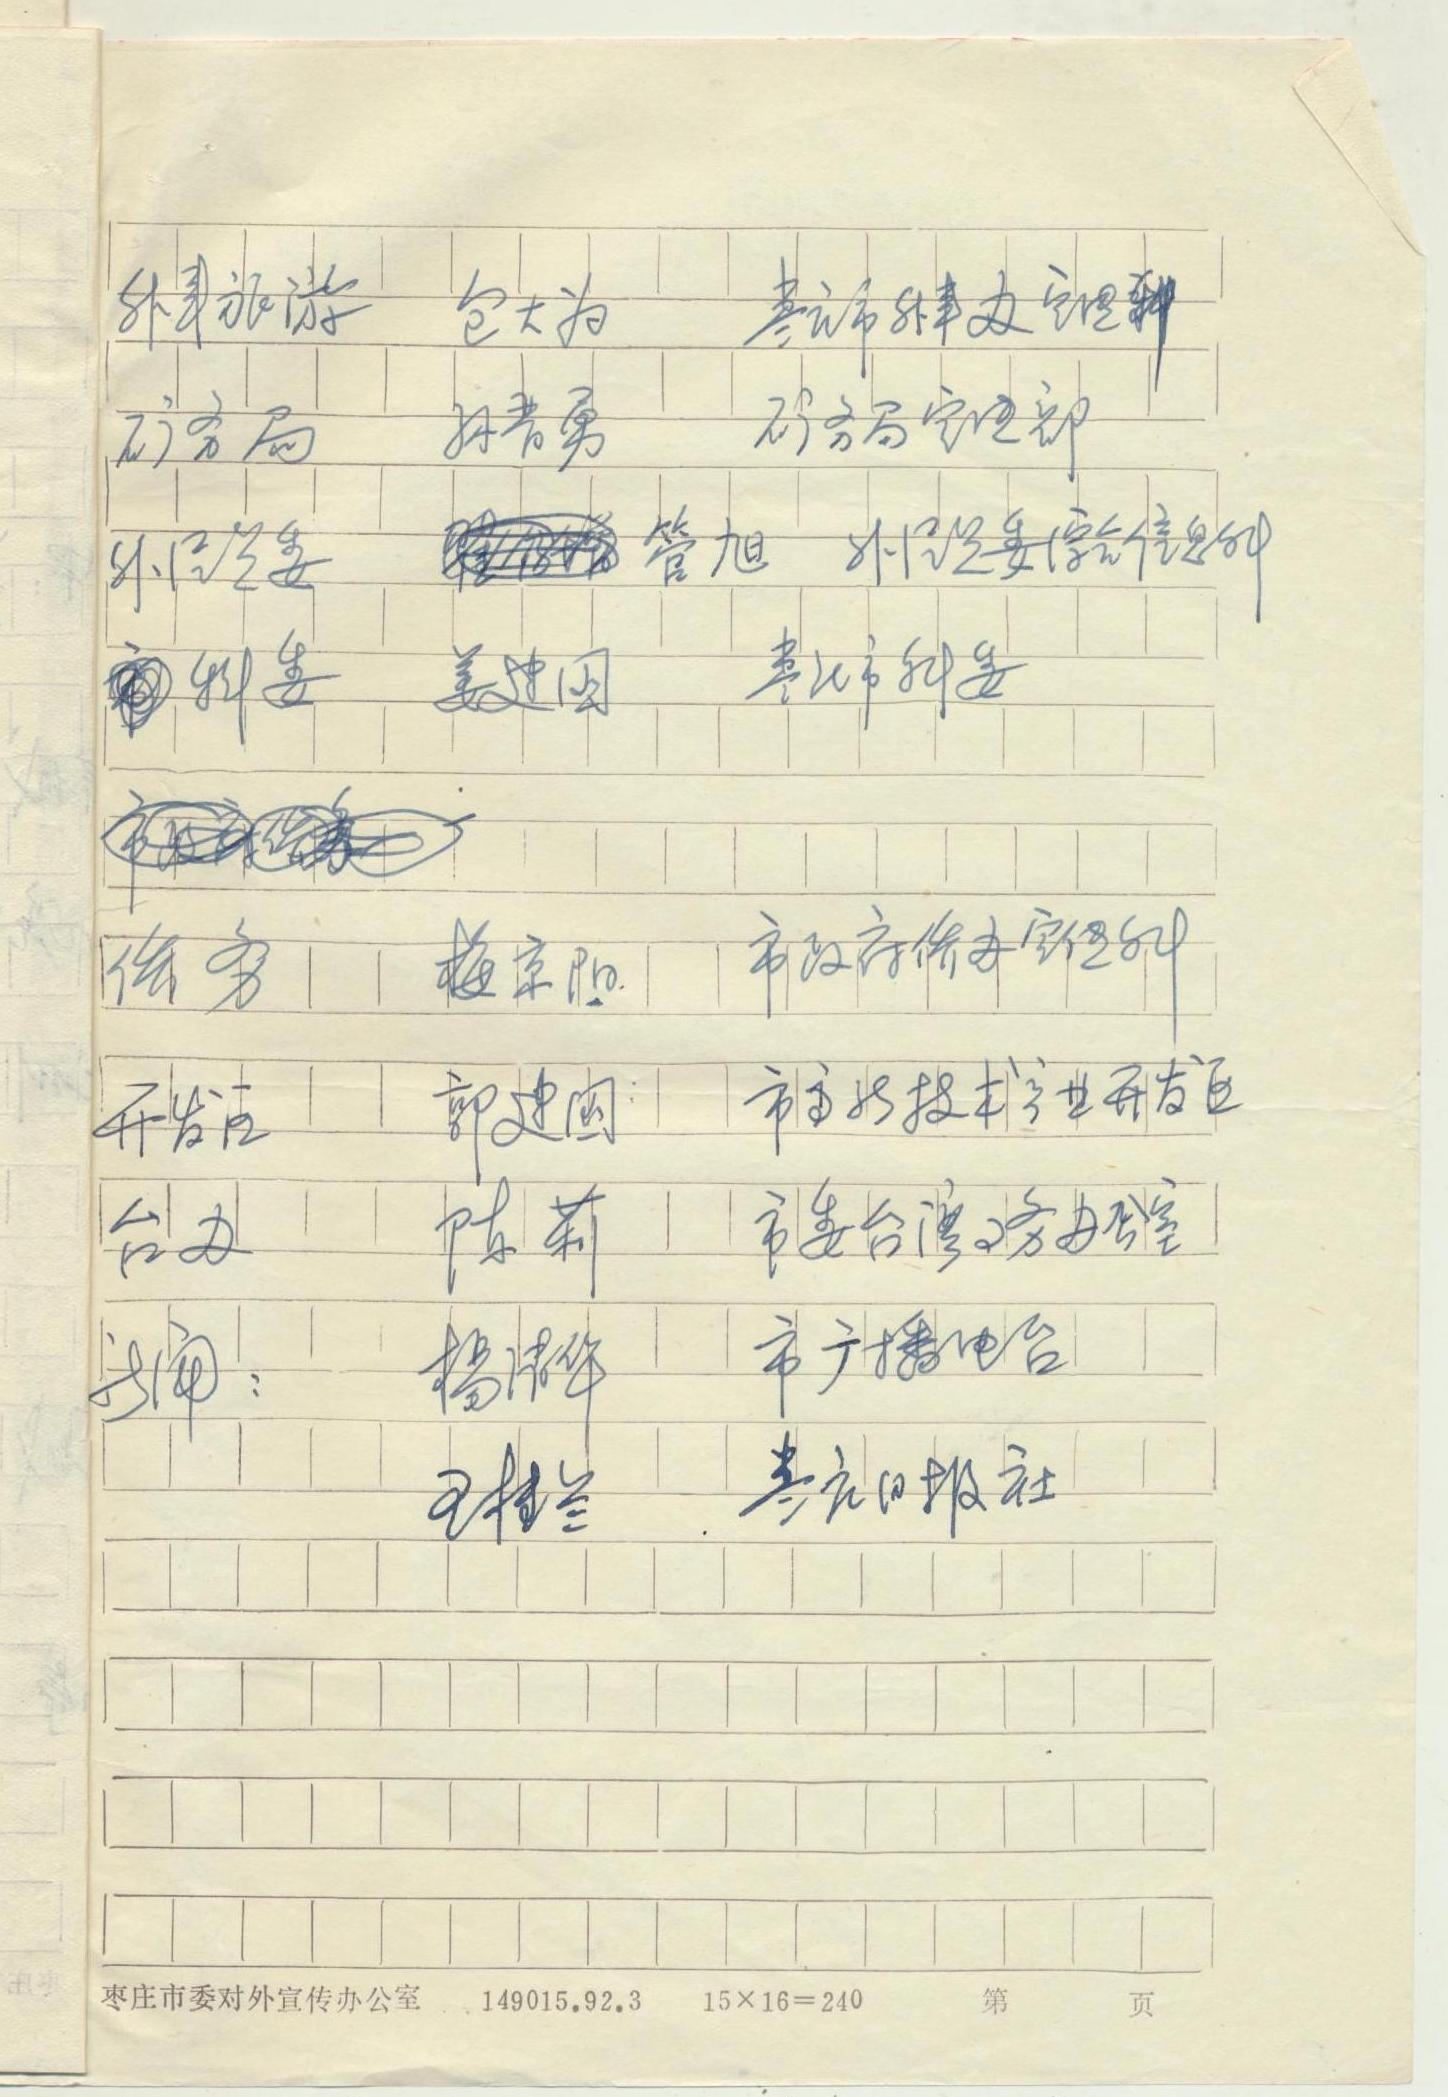 外事旅游 包大为 枣庄市外事办宣传科
矿务局 孙晋勇 矿务局宣传部
外经贸委 管旭 外经贸委综合信息科
科委 姜建国 枣庄市科委
侨务 梅京阳 市政府侨办宣传科
开发区 郭建国 市高新技术产业开发区
台办 陈莉 市委台湾工作办公室
新闻: 杨清华 市广播电台
王桂兰 枣庄日报社
枣庄市委对外宣传办公室 149015.92.3 15×16=240 第 页